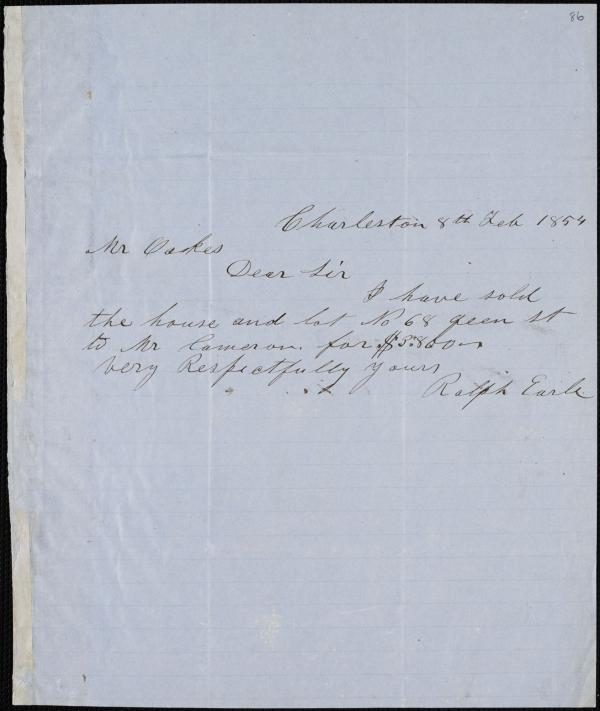 86
Charleston 8th Feb 1854
Mr Oakes
Dear Sir
I have sold
the house and lot No 68 Queen st
to Mr Cameron. for $3800
Very Respectfully Yours
Ralph Earle